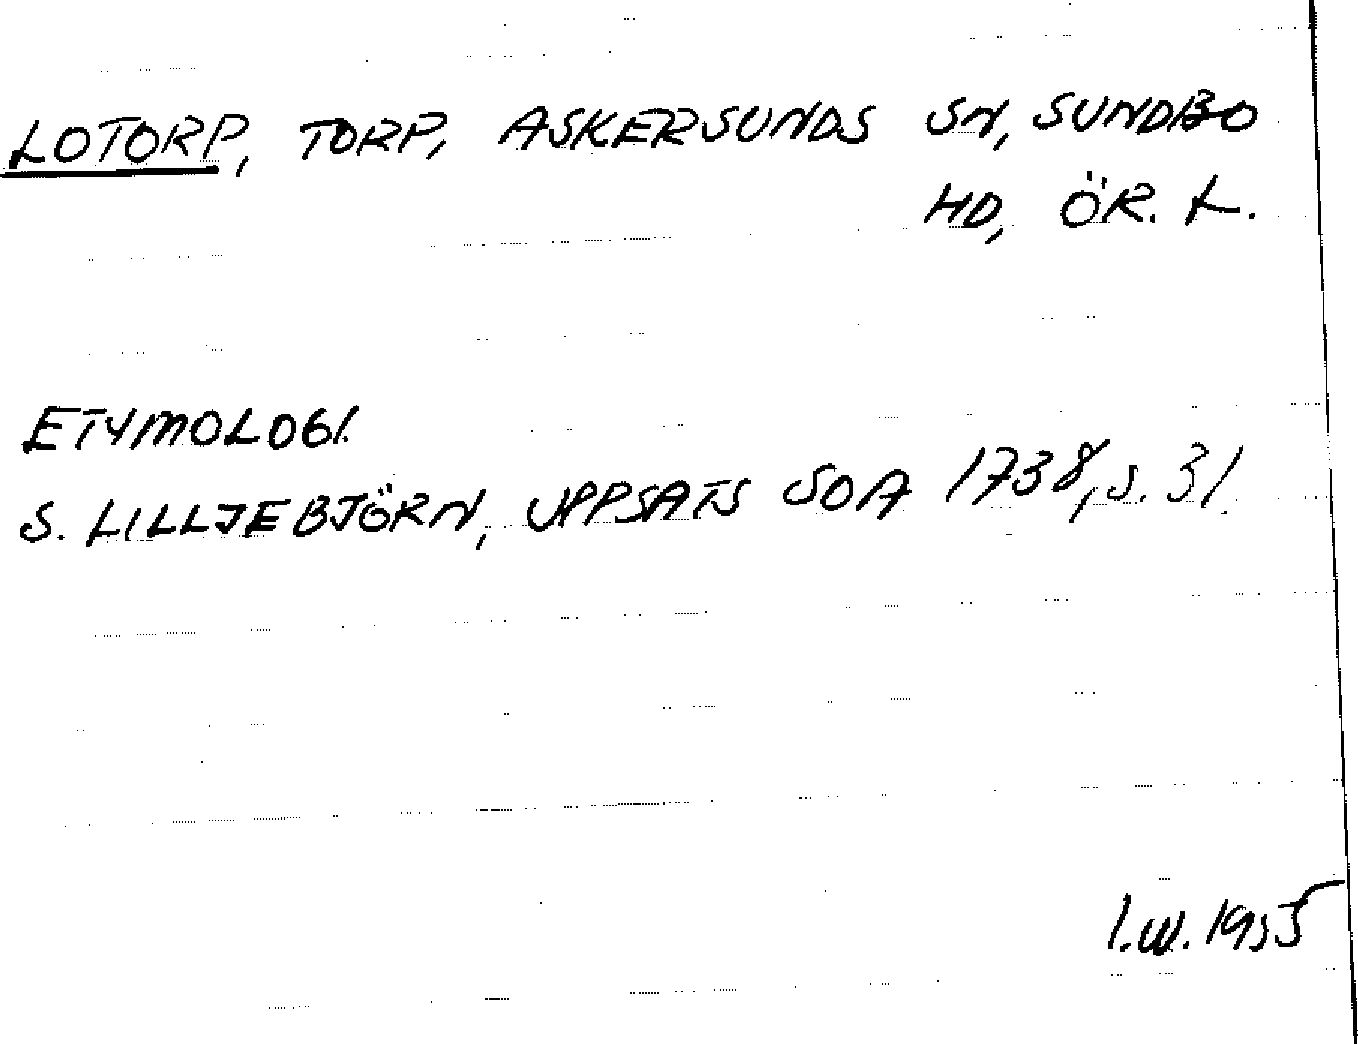 LOTORP, TORP, ASKERSUNDS SN, SUNDBO
HD, ÖR. L.
ETYMOLOGI.
S. LILLJEBJÖRN, UPPSATS SOA 1738, S. 31.
I.W. 1955